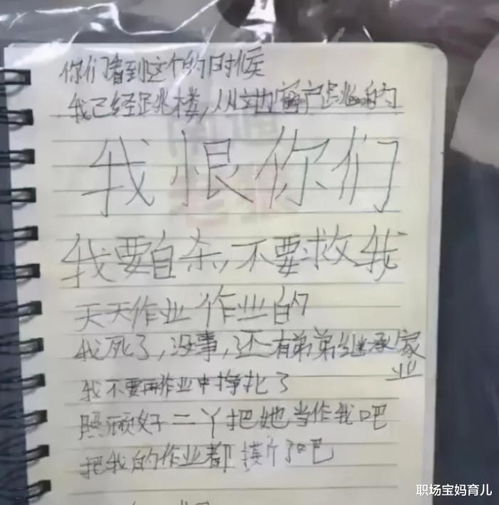 你们看到这个的时候
我已经跳楼,从窗户跳的
我恨你们
我要自杀,不要救我
天天作业作业的
我死了,没事,还有弟弟继承家业
我不要再作业中挣扎了
照顾好二丫把她当作我吧
把我的作业都撕了吧
职场宝妈育儿